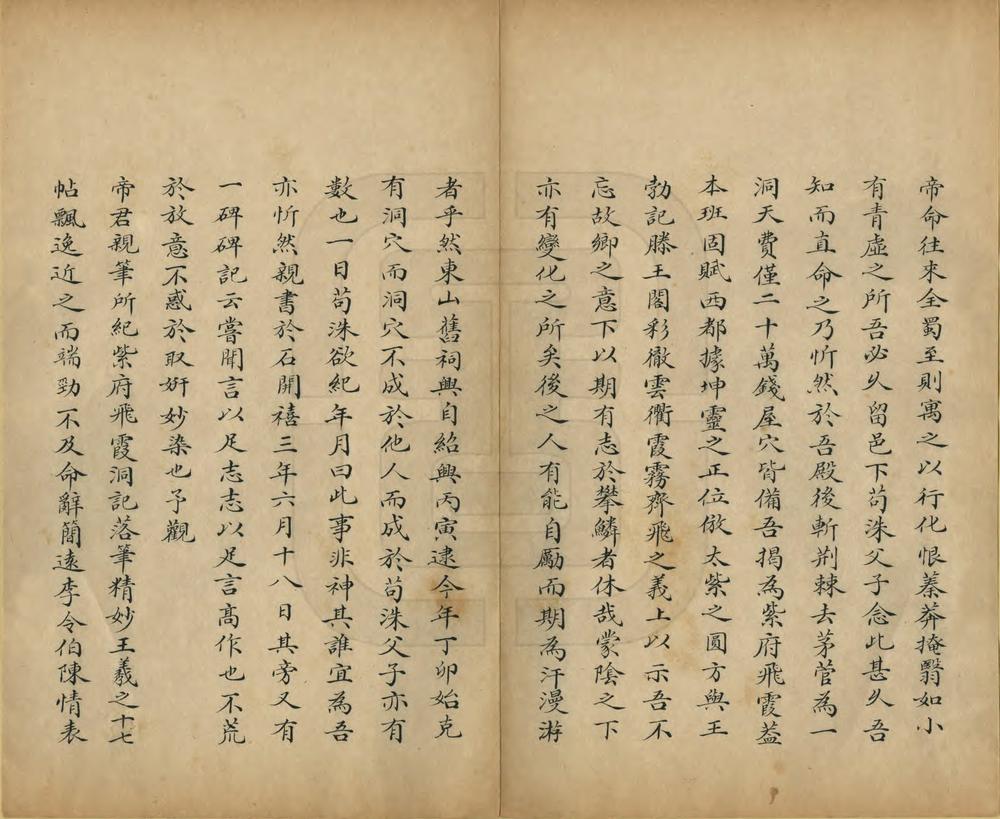 帝命往來全蜀至則寓之以行化恨蓁莽掩翳如小
有青虛之所吾必久留邑下苟洙父子念此甚久吾
知而直命之乃忻然於吾殿後斬荆棘去茅菅為一
洞天費僅二十萬錢屋穴皆備吾揭為紫府飛霞葢
本班固賦西都據坤靈之正位倣太紫之圓方與王
勃記滕王閣彩徹雲衢霞霧齊飛之義上以示吾不
忘故鄉之意下以期有志於攀鱗者休哉蒙陰之下
亦有變化之所矣後之人有能自勵而期為汗漫游
者乎然東山舊祠興自紹興丙寅逮今年丁卯始克
有洞穴而洞穴不成於他人而成於苟洙父子亦有
數也一日苟洙欲紀年月曰此事非神其誰宜為吾
亦忻然親書於石開禧三年六月十八日其旁又有
一碑碑記云嘗聞言以足志志以足言高作也不荒
於放意不惑於取妍妙染也予觀
帝君親筆所紀紫府飛霞洞記落筆精妙王羲之十七
帖飄逸近之而端勁不及命辭簡遠李令伯陳情表